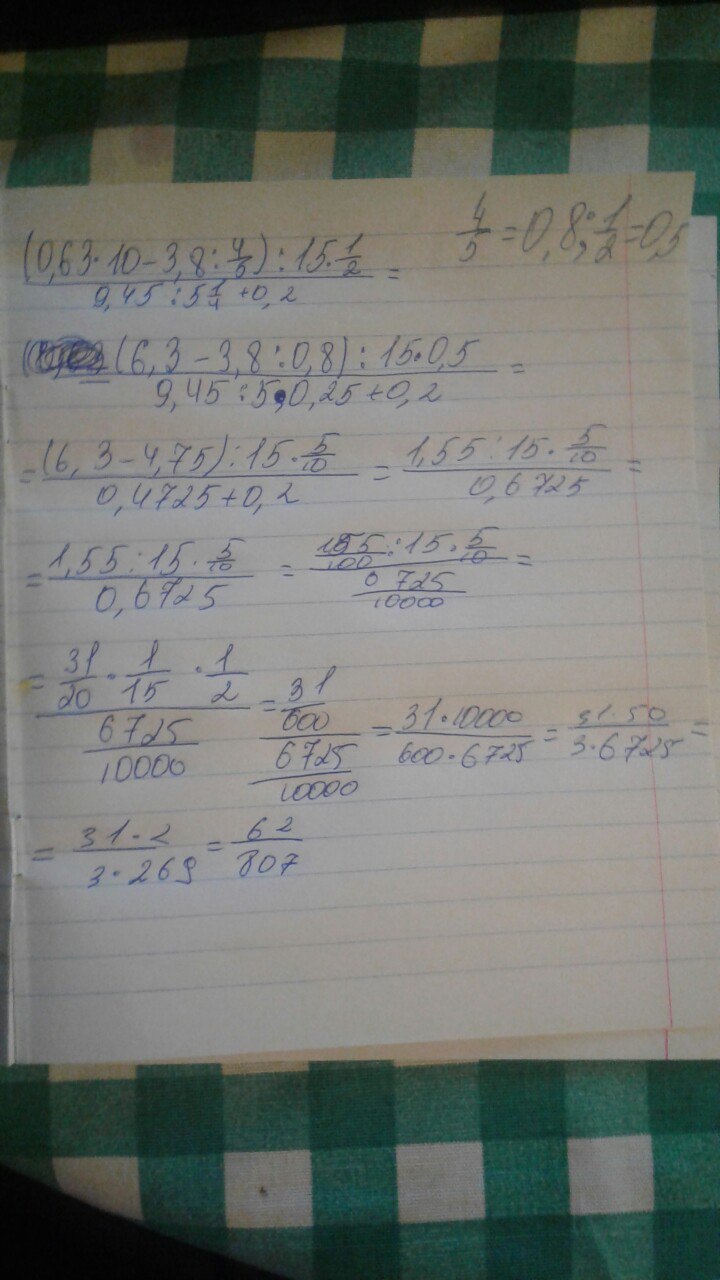 (0,63·10-3,8:4/5):15·1/2 / 9,45:5 1/4+0,2 = 4/5=0,8; 1/2=0,5
(6,3-3,8:0,8):15·0,5 / 9,45:5·0,25+0,2 =
=(6,3-4,75):15·5/10 / 0,4725+0,2 = 1,55:15·5/10 / 0,6725 =
=1,55:15·5/10 / 0,6725 = 155/100:15·5/10 / 6725/10000 =
=31/20·1/15·1/2 / 6725/10000 = 31/600 / 6725/10000 = 31·10000/600·6725 = 31·50/3·6725 =
=31·2/3·269 = 62/807